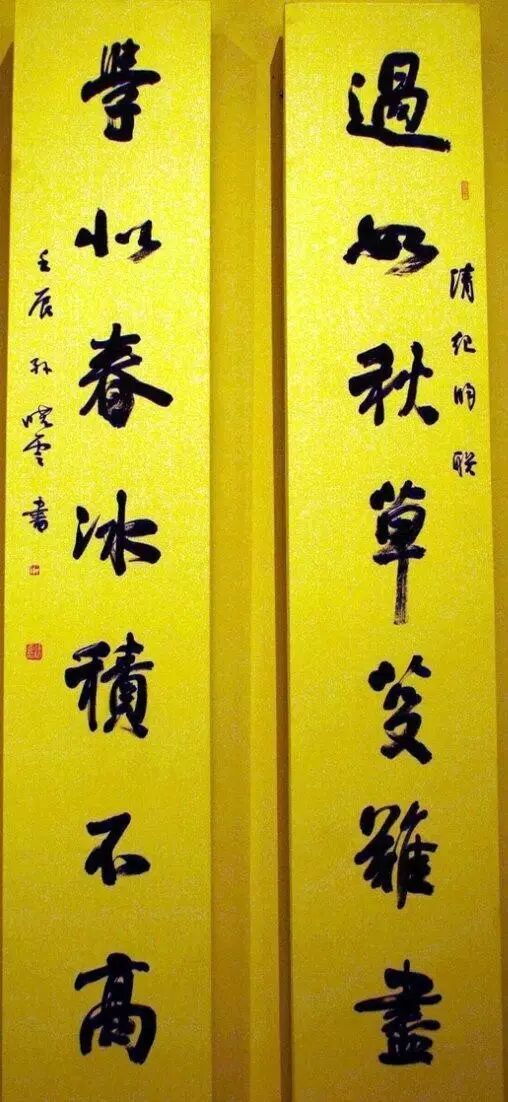 過如秋草芟難盡
清紀昀联
學似春冰積不高
壬辰孫曉雲書